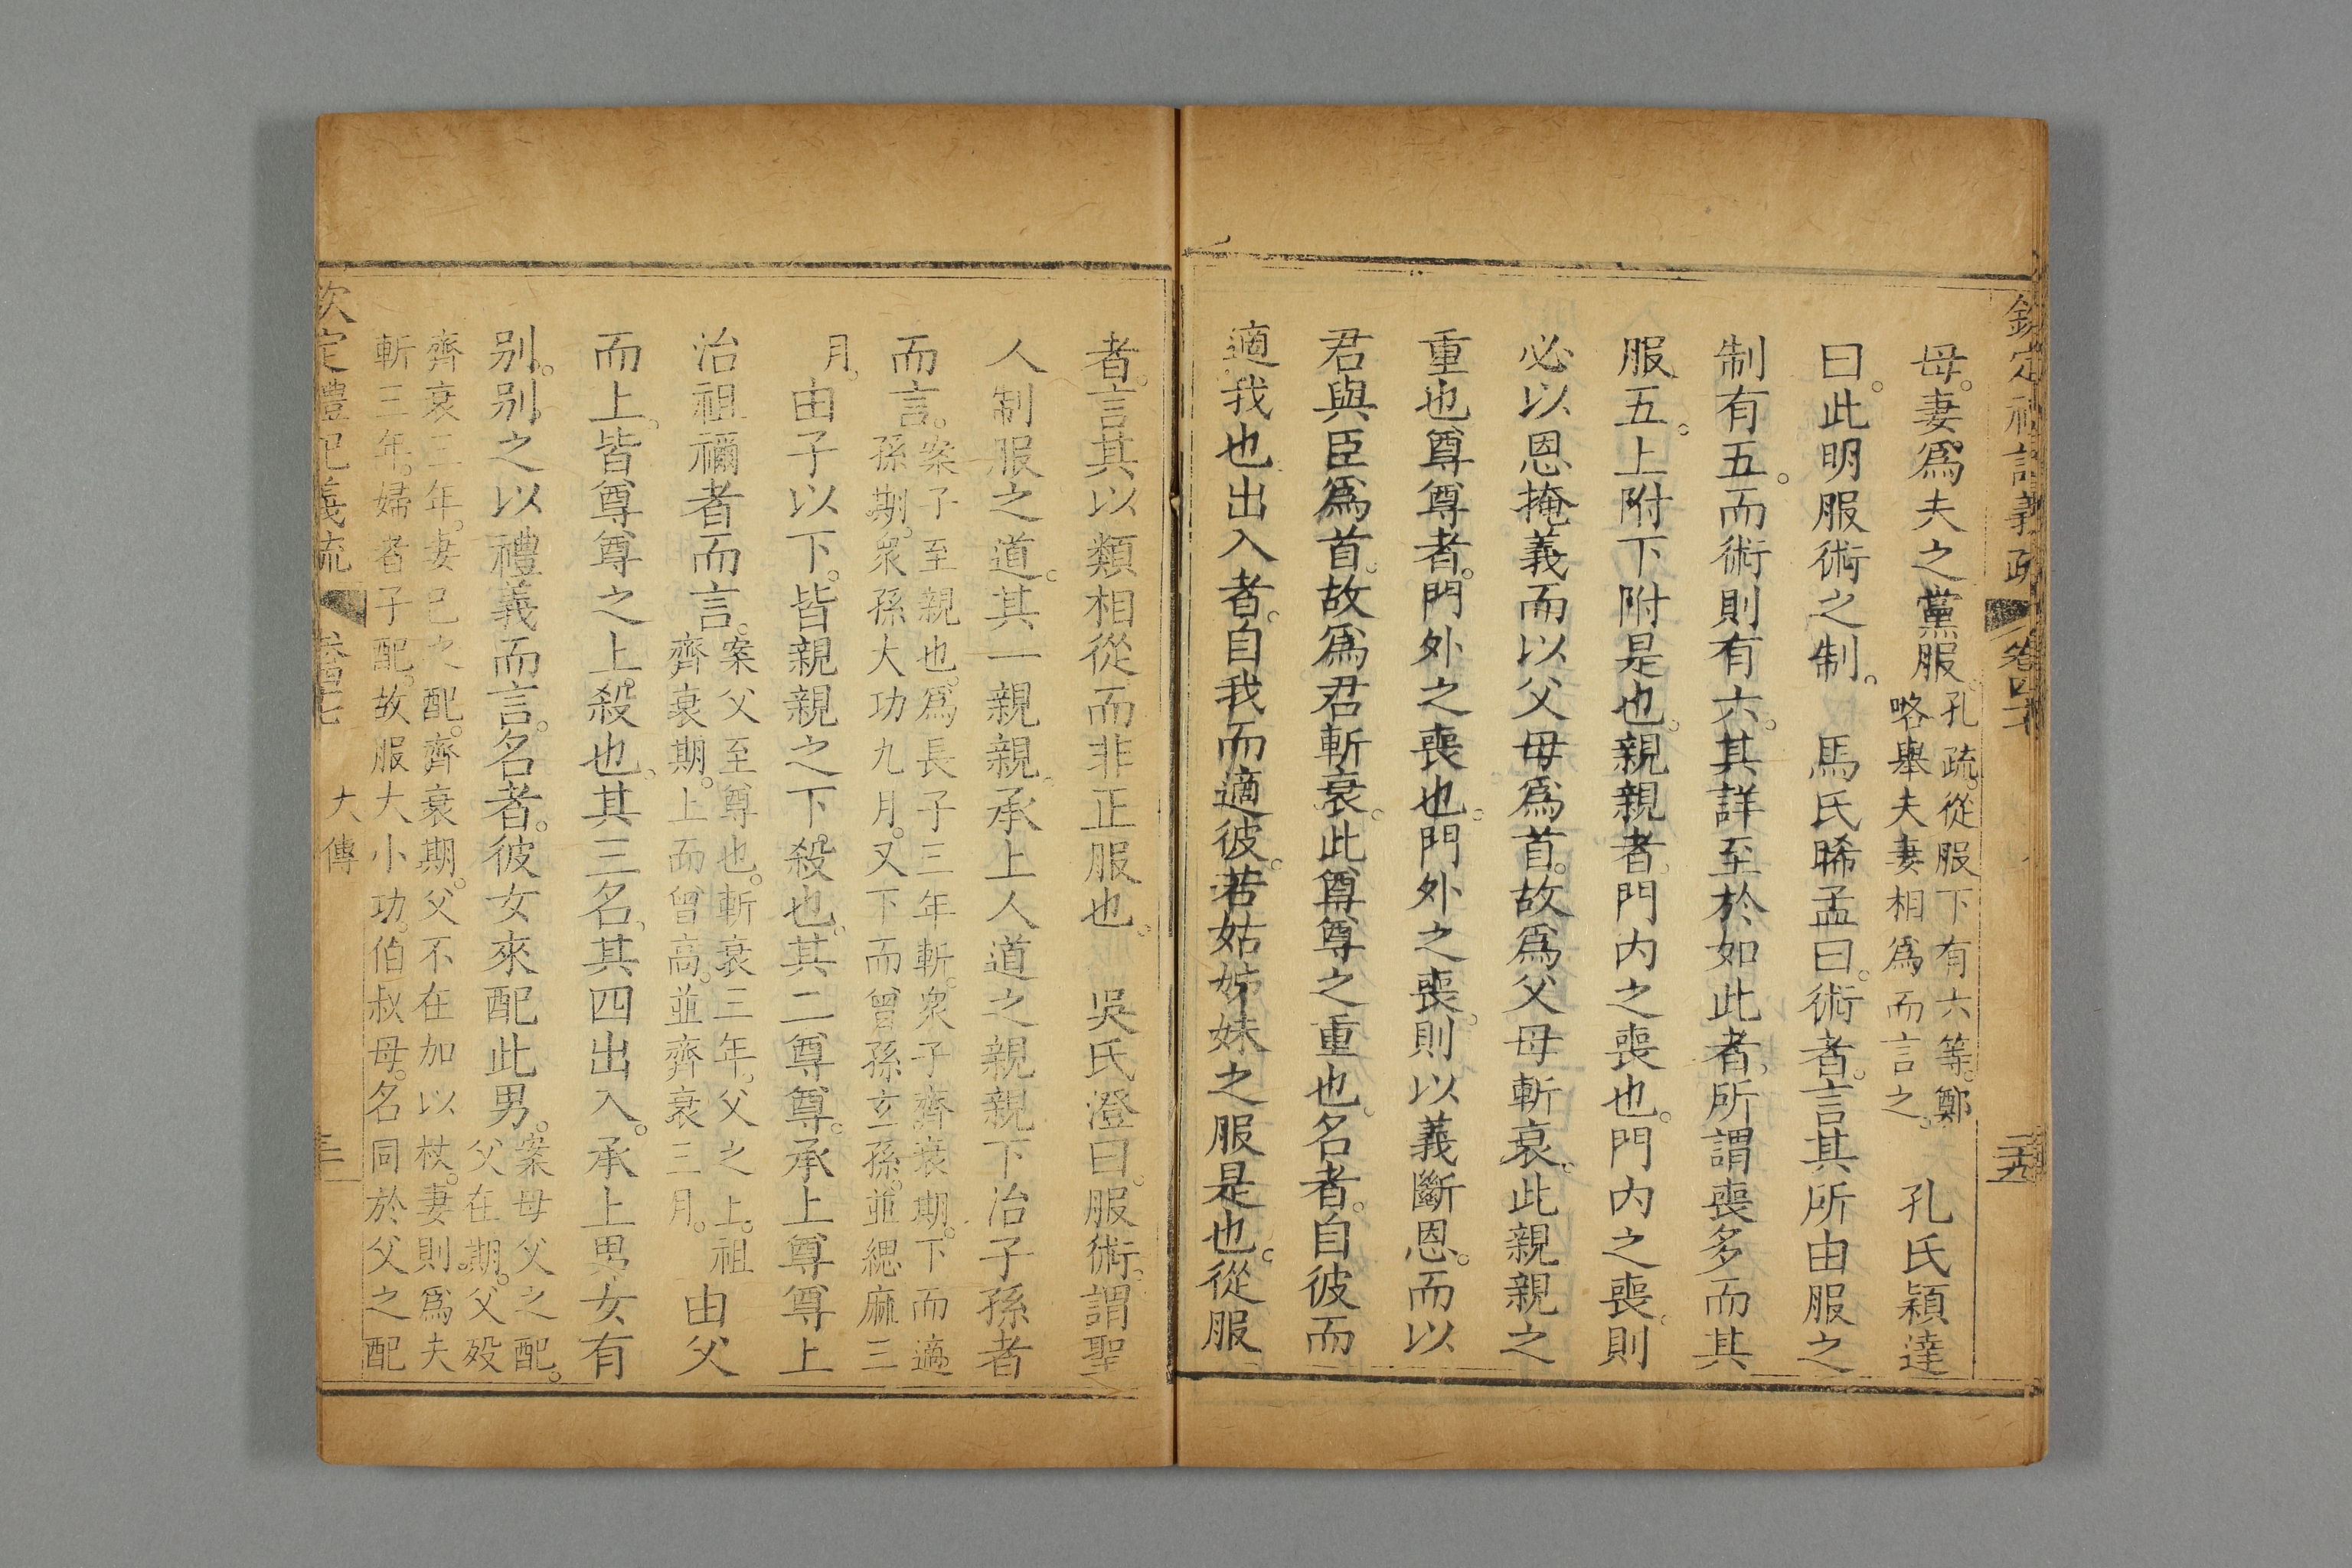 欽定禮記義疏 卷四十
母。妻爲夫之黨服。孔疏。從服下有六等。鄭略舉夫妻相爲而言之。 孔氏穎達
曰。此明服術之制。 馬氏晞孟曰。術者。言其所由服之
制有五。而術則有六。其詳至於如此者。所謂喪多而其
服五。上附下附是也。親親者。門内之喪也。門内之喪。則
必以恩掩義而以父母爲首。故爲父母斬衰。此親親之
重也。尊尊者。門外之喪也。門外之喪。則以義斷恩。而以
君與臣爲首。故爲君斬衰。此尊尊之重也。名者。自彼而
適我也。出入者。自我而適彼。若姑姊妹之服是也。從服
者。言其以類相從而非正服也。 吳氏澄曰。服術。謂聖
人制服之道。其一親親。承上人道之親親下治子孫者
而言。案子至親也。爲長子三年斬。衆子齊衰期。下而適孫期。衆孫大功九月。又下而曾孫玄孫。並緦麻三
月。由子以下。皆親親之下。殺也。其二尊尊。承上尊尊上
治祖禰者而言。案父至尊也。斬衰三年。父之上。祖齊衰期。上而曾高。並齊衰三月。由父
而上。皆尊尊之上。殺也。其三名。其四出入。承上男女有
别。别之以禮義而言。名者。彼女來配此男。案母父之配。父在期。父殁
齊衰三年。妻己之配。齊衰期。父不在加以杖。妻則爲夫
斬三年。婦者子配。故服大小功。伯叔母。名同於父之配
欽定禮記義疏 大傳